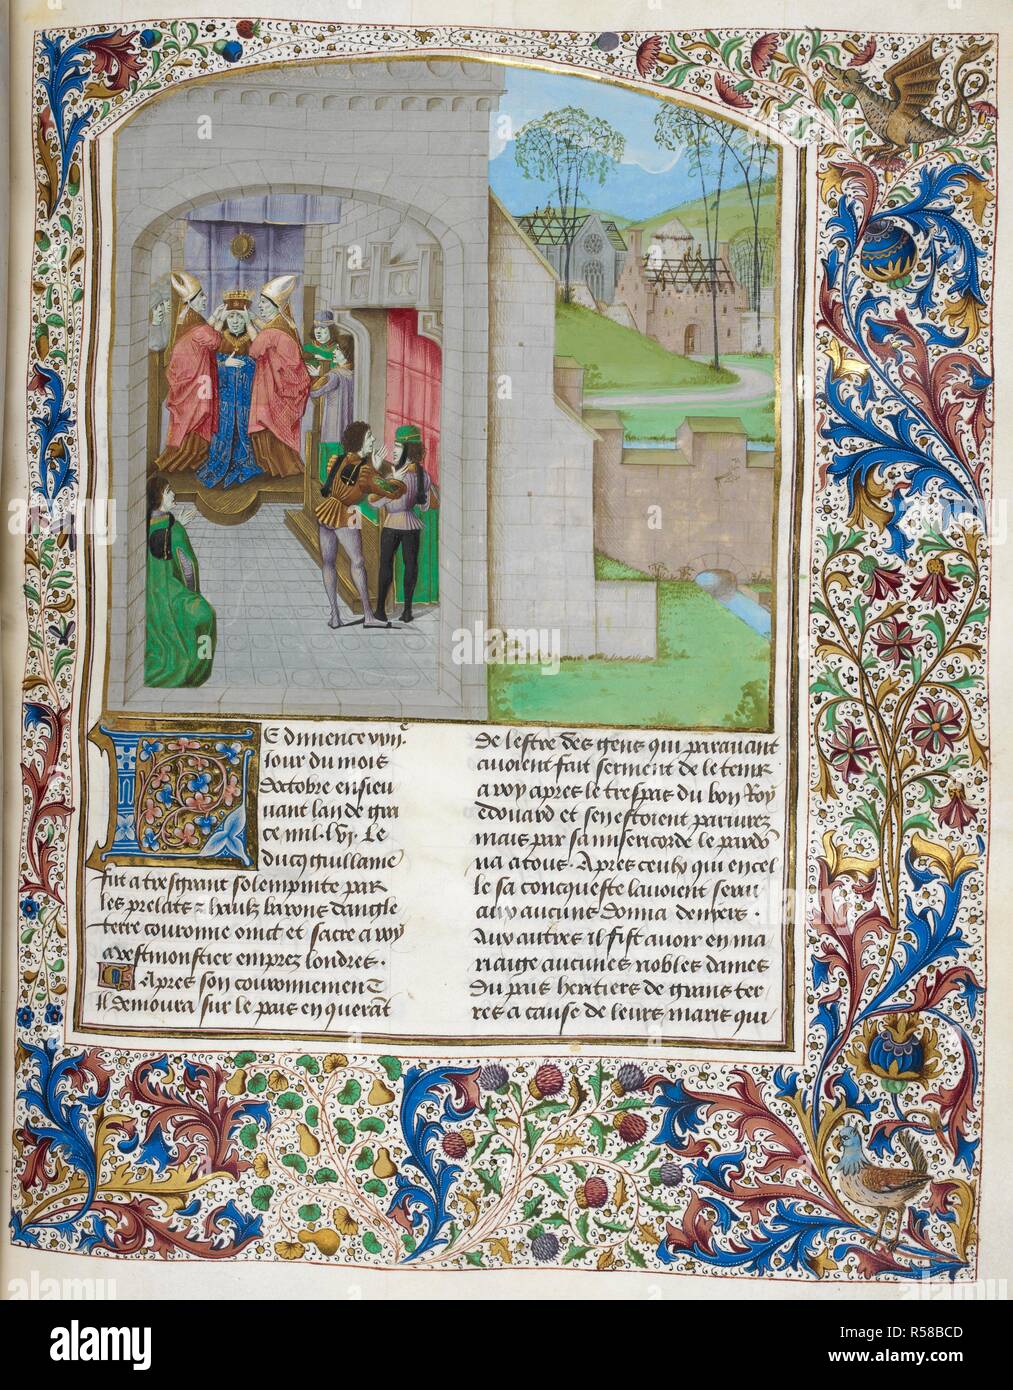 Le dimence xviije
Jour du mois
doctobre ensieu
vant lan de gra
ce mil.lvj. Le
ducq guillaume
fut a tresgrant solempnite par
les prelats z haulz barons dangle
terre couronne oinct et sacre a roy
a westmonstier emprez londres.
Apres son couronnement
Il demoura sur le pais en querāt
de lestre des gens qui parauant
auoient fait serment de le tenir
a roy apres le trespas du bon Roy
Edouard et sen estoient pariurez
mais par sa misericorde le pardōn
na a tous. Apres ceulx qui en cel
le sa concqueste lauoient serui
aux aucuns donna deniers.
Aux autres il fist auoir en ma
riaige aucunes nobles dames
du pais heritiers de grans ter
res a cause de leurs maris qui
alamy
Image ID: R58BCD
www.alamy.com